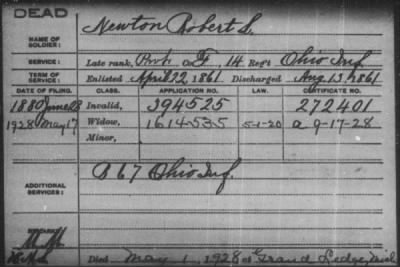 DEAD
NAME OF SOLDIER: Newton Robert S.
SERVICE: Late rank, Prvt. Co F, 14 Reg't Ohio Inf
TERM OF SERVICE: Enlisted April 22, 1861 Discharged Aug 13, 1861
DATE OF FILING. CLASS. APPLICATION NO. LAW. CERTIFICATE NO.
1880 June 23 Invalid, 394525 272401
1928 May 17 Widow, 1614535 5-1-20 a 9-17-28
Minor,
ADDITIONAL SERVICES: B 67 Ohio Inf.
REMARKS:
Died May 1, 1928 at Grand Ledge, Mich